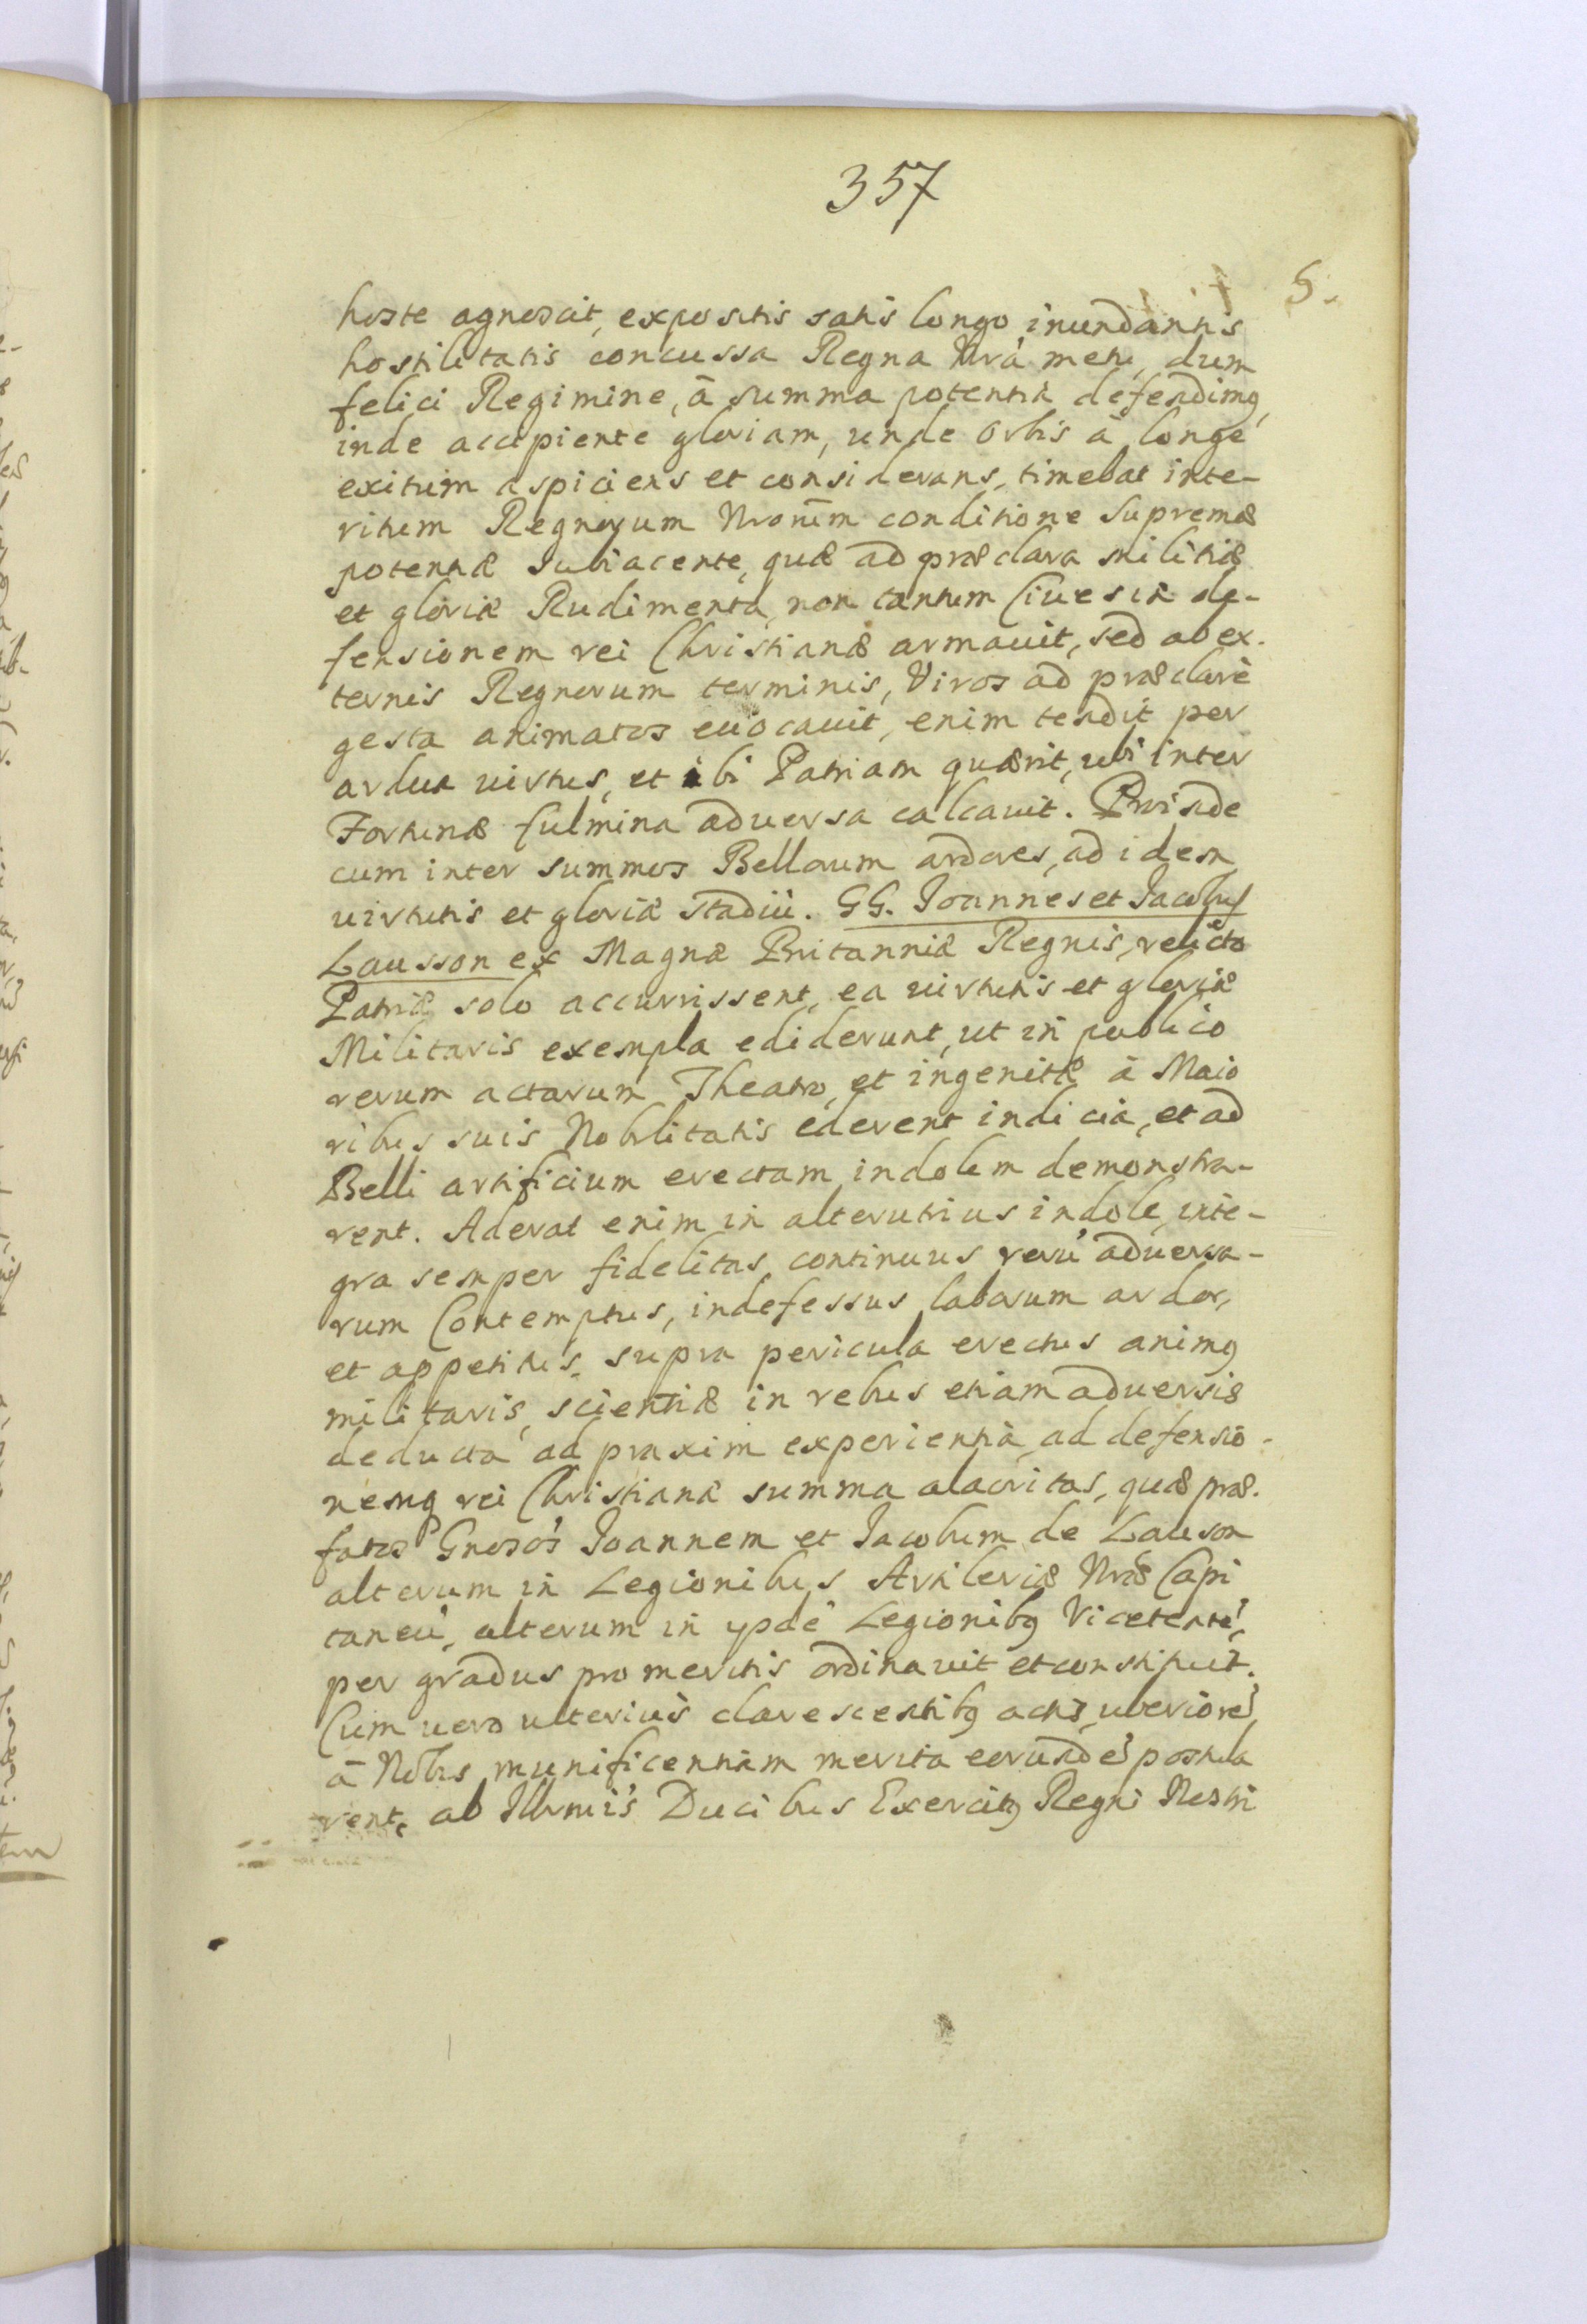 357
5.
hoste agnoscit, expositis satis longo inundantis
hostilitatis concussa Regna Nrã metu, dum
felici Regimine, ã summa potentia defendimq,
inde accipiente gloriam, unde Orbis à longè
exitum aspiciens et considerans, timebat inte-
ritum Regnorum Nrorum conditione Supremæ
potentiæ subiacente, quæ ad præclara militiæ
et gloriæ Rudimenta, non tantum Ciues in de-
fensionem rei Christianæ armauit, sed ab ex-
ternis Regnorum terminis, Viros ad præclarè
gesta animatos euocauit, enim tendit per
ardua uirtus, et ibi Patriam quærit, ubi inter
Fortunæ fulmina aduersa calcauit. Proinde
cum inter summos Bellorum ardores, ad idem
uirtutis et gloriæ stadiũ. GG. Ioannes et Iacobus
Lausson ex Magnæ Britanniæ Regnis, relicto
Patriæ solo accurrissent, ea uirtutis et gloriæ
Militaris exempla ediderunt, ut in publico
rerum actarum Theatro, et ingenitæ à Maio
ribus suis Nobilitatis ederent indicia, et ad
Belli artificium erectam indolem demonstra-
rent. Aderat enim in alterutrius indole inte-
gra semper fidelitas, continuus rerũ aduersa-
rum Contemptus, indefessus laborum ardor,
et appetitus, supra pericula erectus animq
militaris, scientiæ in rebus etiam aduersis
deducta ad praxim experientia, ad defensio-
nemq rei Christianæ summa alacritas, quæ præ-
fatos Gnosos Ioannem et Iacobum de Lauson
alterum in Legionibus Artileriæ Nræ Capi
taneũ, alterum in ijsdẽ Legionibq Vicetentẽ,
per gradus pro meritis ordinauit et constituit.
Cum uero ulterius clarescentibq actis, uberiorẽ
ã Nobis munificentiam merita eorundẽ postula
rent, ab Illrmis Ducibus Exercitq Regni Nostri